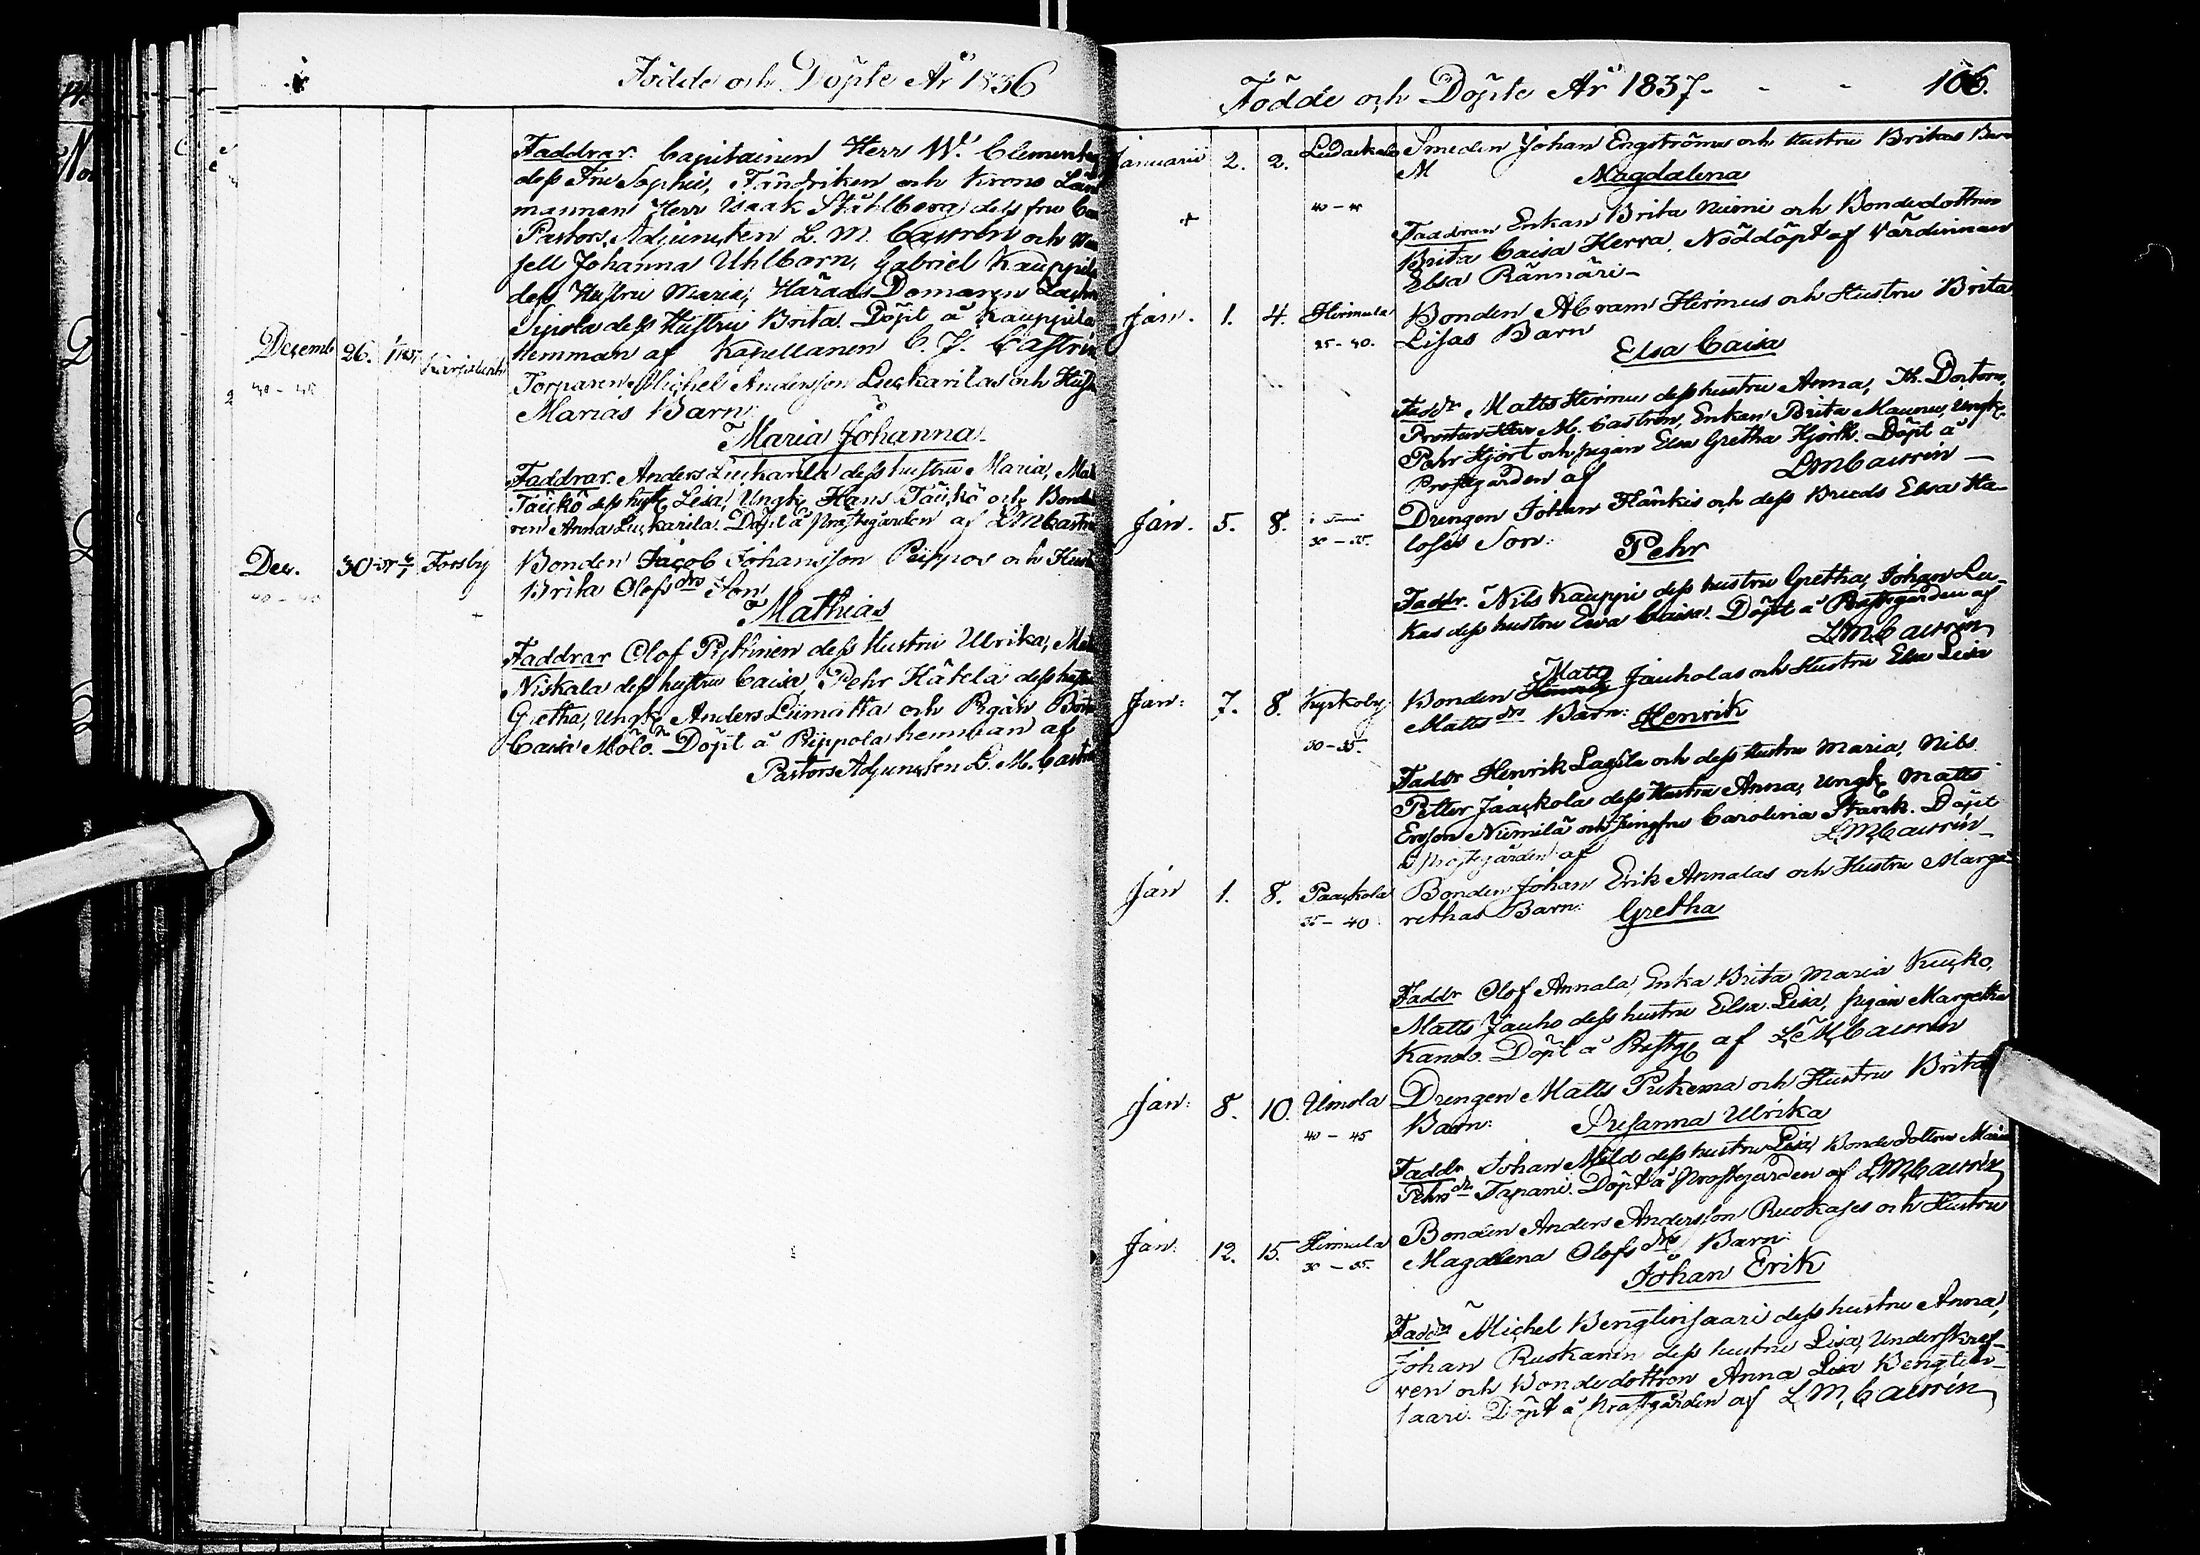 Födde och Döpte År 1836
Faddrar. Capitainen Herr W. Clementz
dess Fru Sophie, Fändriken och Krono Läns
mannen Herr Isaak Ståhlberg dess fru
Pastors Adjunkten L. M. Castrén och Mam
sell Johanna Uhlborn, Gabriel Kauppila
dess Hustru Maria, Härads Domaren
dess Hustru Brita. Döpt å Kauppila
Hemman af Kapellanen C. J. Castrén
Decemb 26. 1/1837
40 - 45
Torparen Michel Andersson Luckarilas och Hust
Marias Barn:
Maria Johanna
Faddrar. Anders Luckarila dess hustru Maria, Mat
dess hust Lisa, Ungk Hans och Bonde
ren Anna Luckarila. Döpt å Prostgården af LMCastrén
Dec. 30 Forsby
40 - 45
Bonden Jacob Johansson Piippos och Hust
Brita Olofsdrs Son
Mathias
Faddrar Olof Pyhtinen dess Hustru Ulrika, Mat
Niskala dess hustru Caisa, Pehr Hätelä dess hust
Gretha, Ungk Anders Liimatta och Pigan Brita
Caisa Mölö. Döpt å Piippola hemman af
Pastors Adjunkten L. M. Castrén
Födde och Döpte År 1837 - - - 106.
Januarii 2. 2. Ludackala
40 - 45
Smeden Johan Engströms och Hustru Britas Barn
M Magdalena
Faddrar Enkan Brita Niemi och Bondedottren
Brita Caisa Herva. Nöddöpt af Värdinnan
Elsa Rännäri -
Jan. 1. 4. Hirmula
35 - 40.
Bonden Abram Hirmus och Hustru Brita
Lisas Barn
Elsa Caisa
Faddr Matts Hirmu dess hustru Anna, Th. Doctorn,
Prosten Herr M. Castrén, Enkan Brita Maunu, Ungk
Pehr Hjort och pigan Elsa Gretha Hjorth. Döpt å
Prostgården af LMCastrén
Jan. 5. 8.
30 - 35.
Drengen Johan Hänkis och dess Bruds Elsa Ha-
loses Son: Pehr
Faddr. Nils Kauppi dess hustru Gretha, Johan Lu-
kas dess hustru Ewa Caisa. Döpt å Prostgården af
LMCastrén
Jan: 7. 8. Kyrkoby
30 - 35.
Matts
Bonden Jauholas och Hustru Elsa Lisa
Mattsdrs Barn: Henrik
Faddr Henrik Lagula och dess Hustru Maria, Nils
Petter Jaackola dess Hustru Anna, Ungk Matts
Erson Niemilä och Jungfru Carolina Starck. Döpt
å Prostegården af LMCastrén
Jan 1. 8. Paackola
35 - 40
Bonden Johan Erik Annalas och Hustru Marga
rethas Barn: Gretha
Faddr Olof Annala, Enka Brita Maria Kucko,
Matts Jauho dess hustru Elsa Lisa, pigan Margetha
Kando. Döpt å Prostg af LMCastrén
Jan: 8. 10. Uinola
40 - 45
Drengen Matts Pukema och Hustru Britas
Barn: Susanna Ulrika
Faddr Johan Mild dess hustru Lisa, Bonde dottren Maria
Pehrsdr Tapani. Döpt å Prostegården af LMCastrén
Jan: 12. 15. Hirmula
30 - 35.
Bonden Anders Andersson Ruokases och Hustru
Magdlena Olofsdrs Barn:
Johan Erik
Faddr Michel Benglinsaari dess hustru Anna,
Johan Ruskanen dess hustru Lisa, Underskref-
ven och Bondedottren Anna Lisa Benglin-
saari. Döpt å Prostgården af LMCastrén